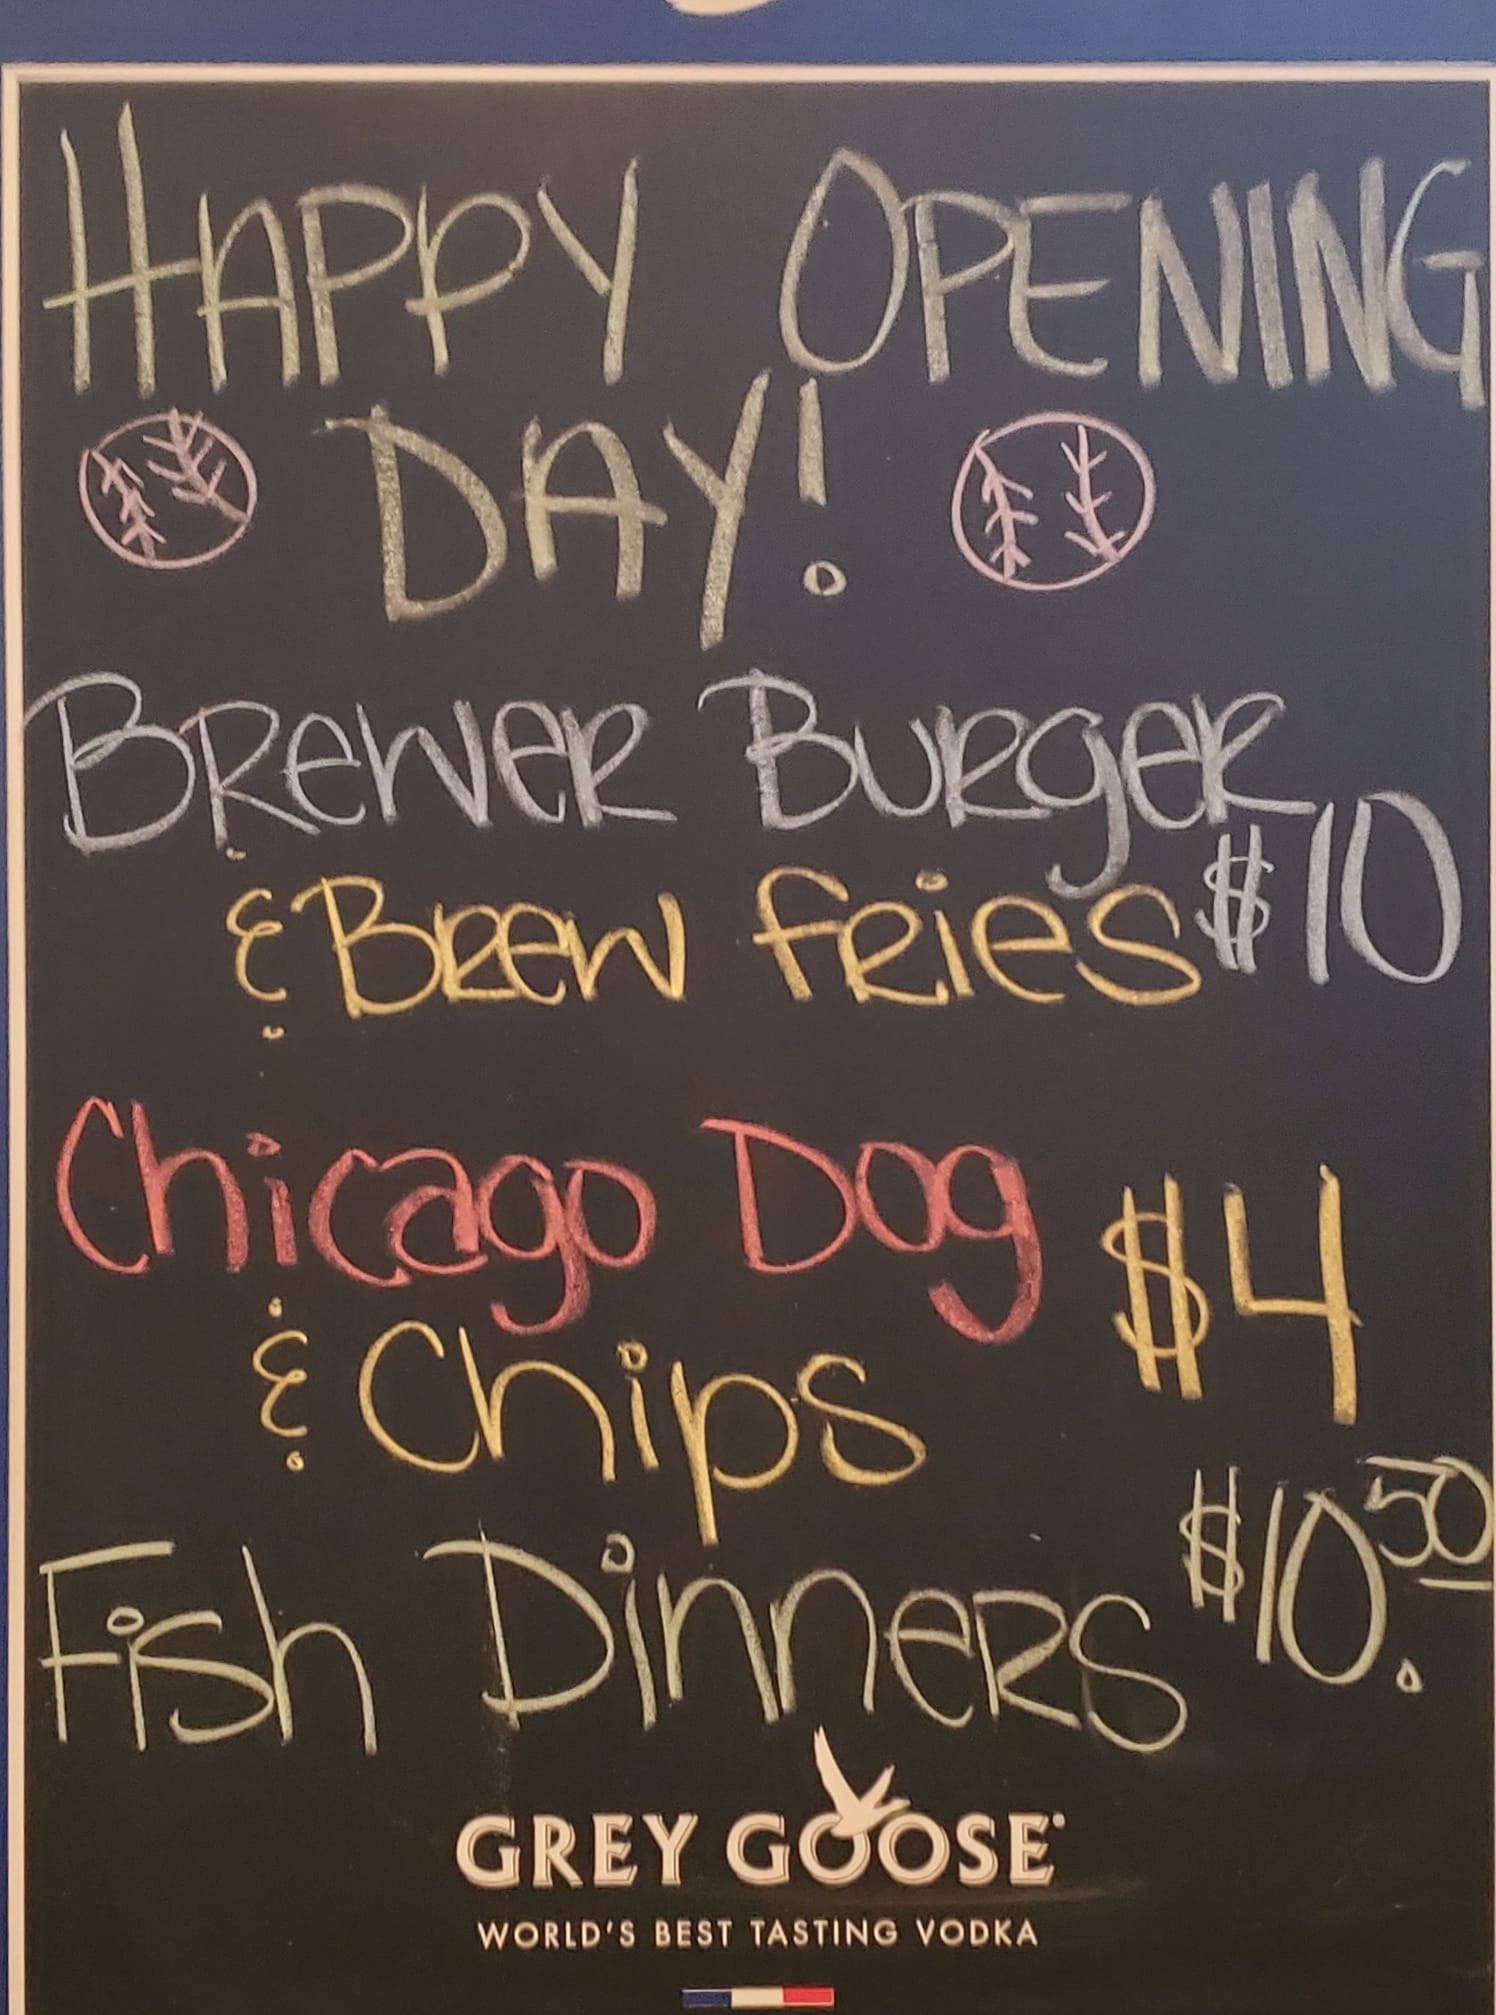 HAPPY OPENING
DAY!
BREWER BURGER
& BREW FRIES $10
Chicago Dog
& Chips $4
Fish Dinners $10.50
GREY GOOSE
WORLD'S BEST TASTING VODKA